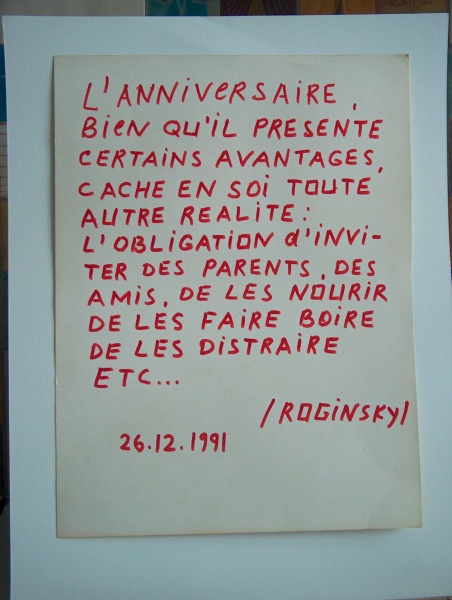 L'ANNIVERSAIRE,
BIEN QU'IL PRESENTE
CERTAINS AVANTAGES,
CACHE EN SOI TOUTE
AUTRE REALITE:
L'OBLIGATION d'INVI-
TER DES PARENTS, DES
AMIS, DE LES NOURIR
DE LES FAIRE BOIRE
DE LES DISTRAIRE
ETC...
/ROGINSKY/
26.12.1991